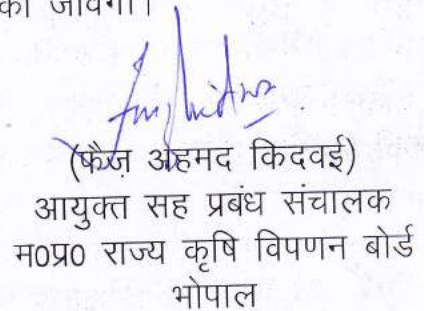 की जावेगी।
(फैज़ अहमद किदवई)
आयुक्त सह प्रबंध संचालक
म0प्र0 राज्य कृषि विपणन बोर्ड
भोपाल